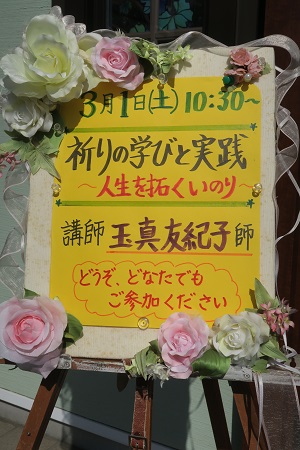 3月1日(土) 10:30〜
祈りの学びと実践
〜人生を拓くいのり〜
講師 玉真友紀子師
どうぞ、どなたでも
ご参加ください